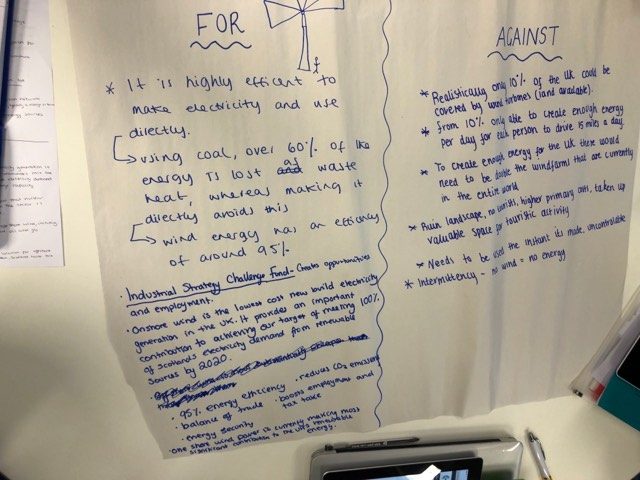 FOR
* It is highly efficent to
make electricity and use
directly.
using coal, over 60% of the
energy is lost as waste
heat, whereas making it
directly avoids this
wind energy has an efficiency
of around 95%
• Industrial Strategy Challenge Fund - Creates opportunities
and employment.
• Onshore wind is the lowest cost new build electricity
generation in the UK. It provides an important
contribution to achieving our target of meeting 100%
of Scotlands electricity demand from renewable
sources by 2020.
• 95% energy efficiency
• reduces CO2 emissions
• balance of trade
• boosts employment and
tax take
• energy security
shore wind power is currently making most
significant contribution to the UK's renewable
energy.
AGAINST
* Realistically only 10% of the UK could be
covered by wind turbines (land available).
* From 10% only able to create enough energy
per day for each person to drive 15 miles a day.
* To create enough energy for the UK there would
need to be double the windfarms that are currently
in the entire world
* Ruin landscape, no tourists, higher primary costs, taken up
valuable space for touristic activity
* Needs to be used the instant its made, uncontrollable
* Intermittency - no wind = no energy